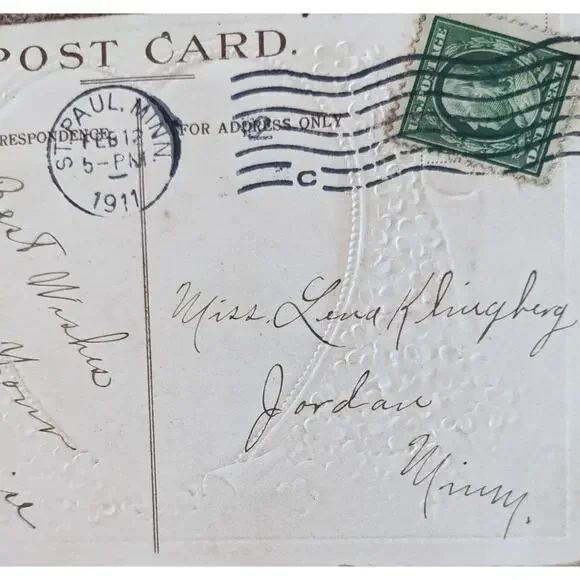 POST CARD.
ST. PAUL, MINN.
FEB 12
5-PM
1911
C
RESPONDENCE
FOR ADDRESS ONLY
POSTAGE
ONE CENT
Best Wishes
Your
Miss. Lena Klingberg
Jordan
Minn.